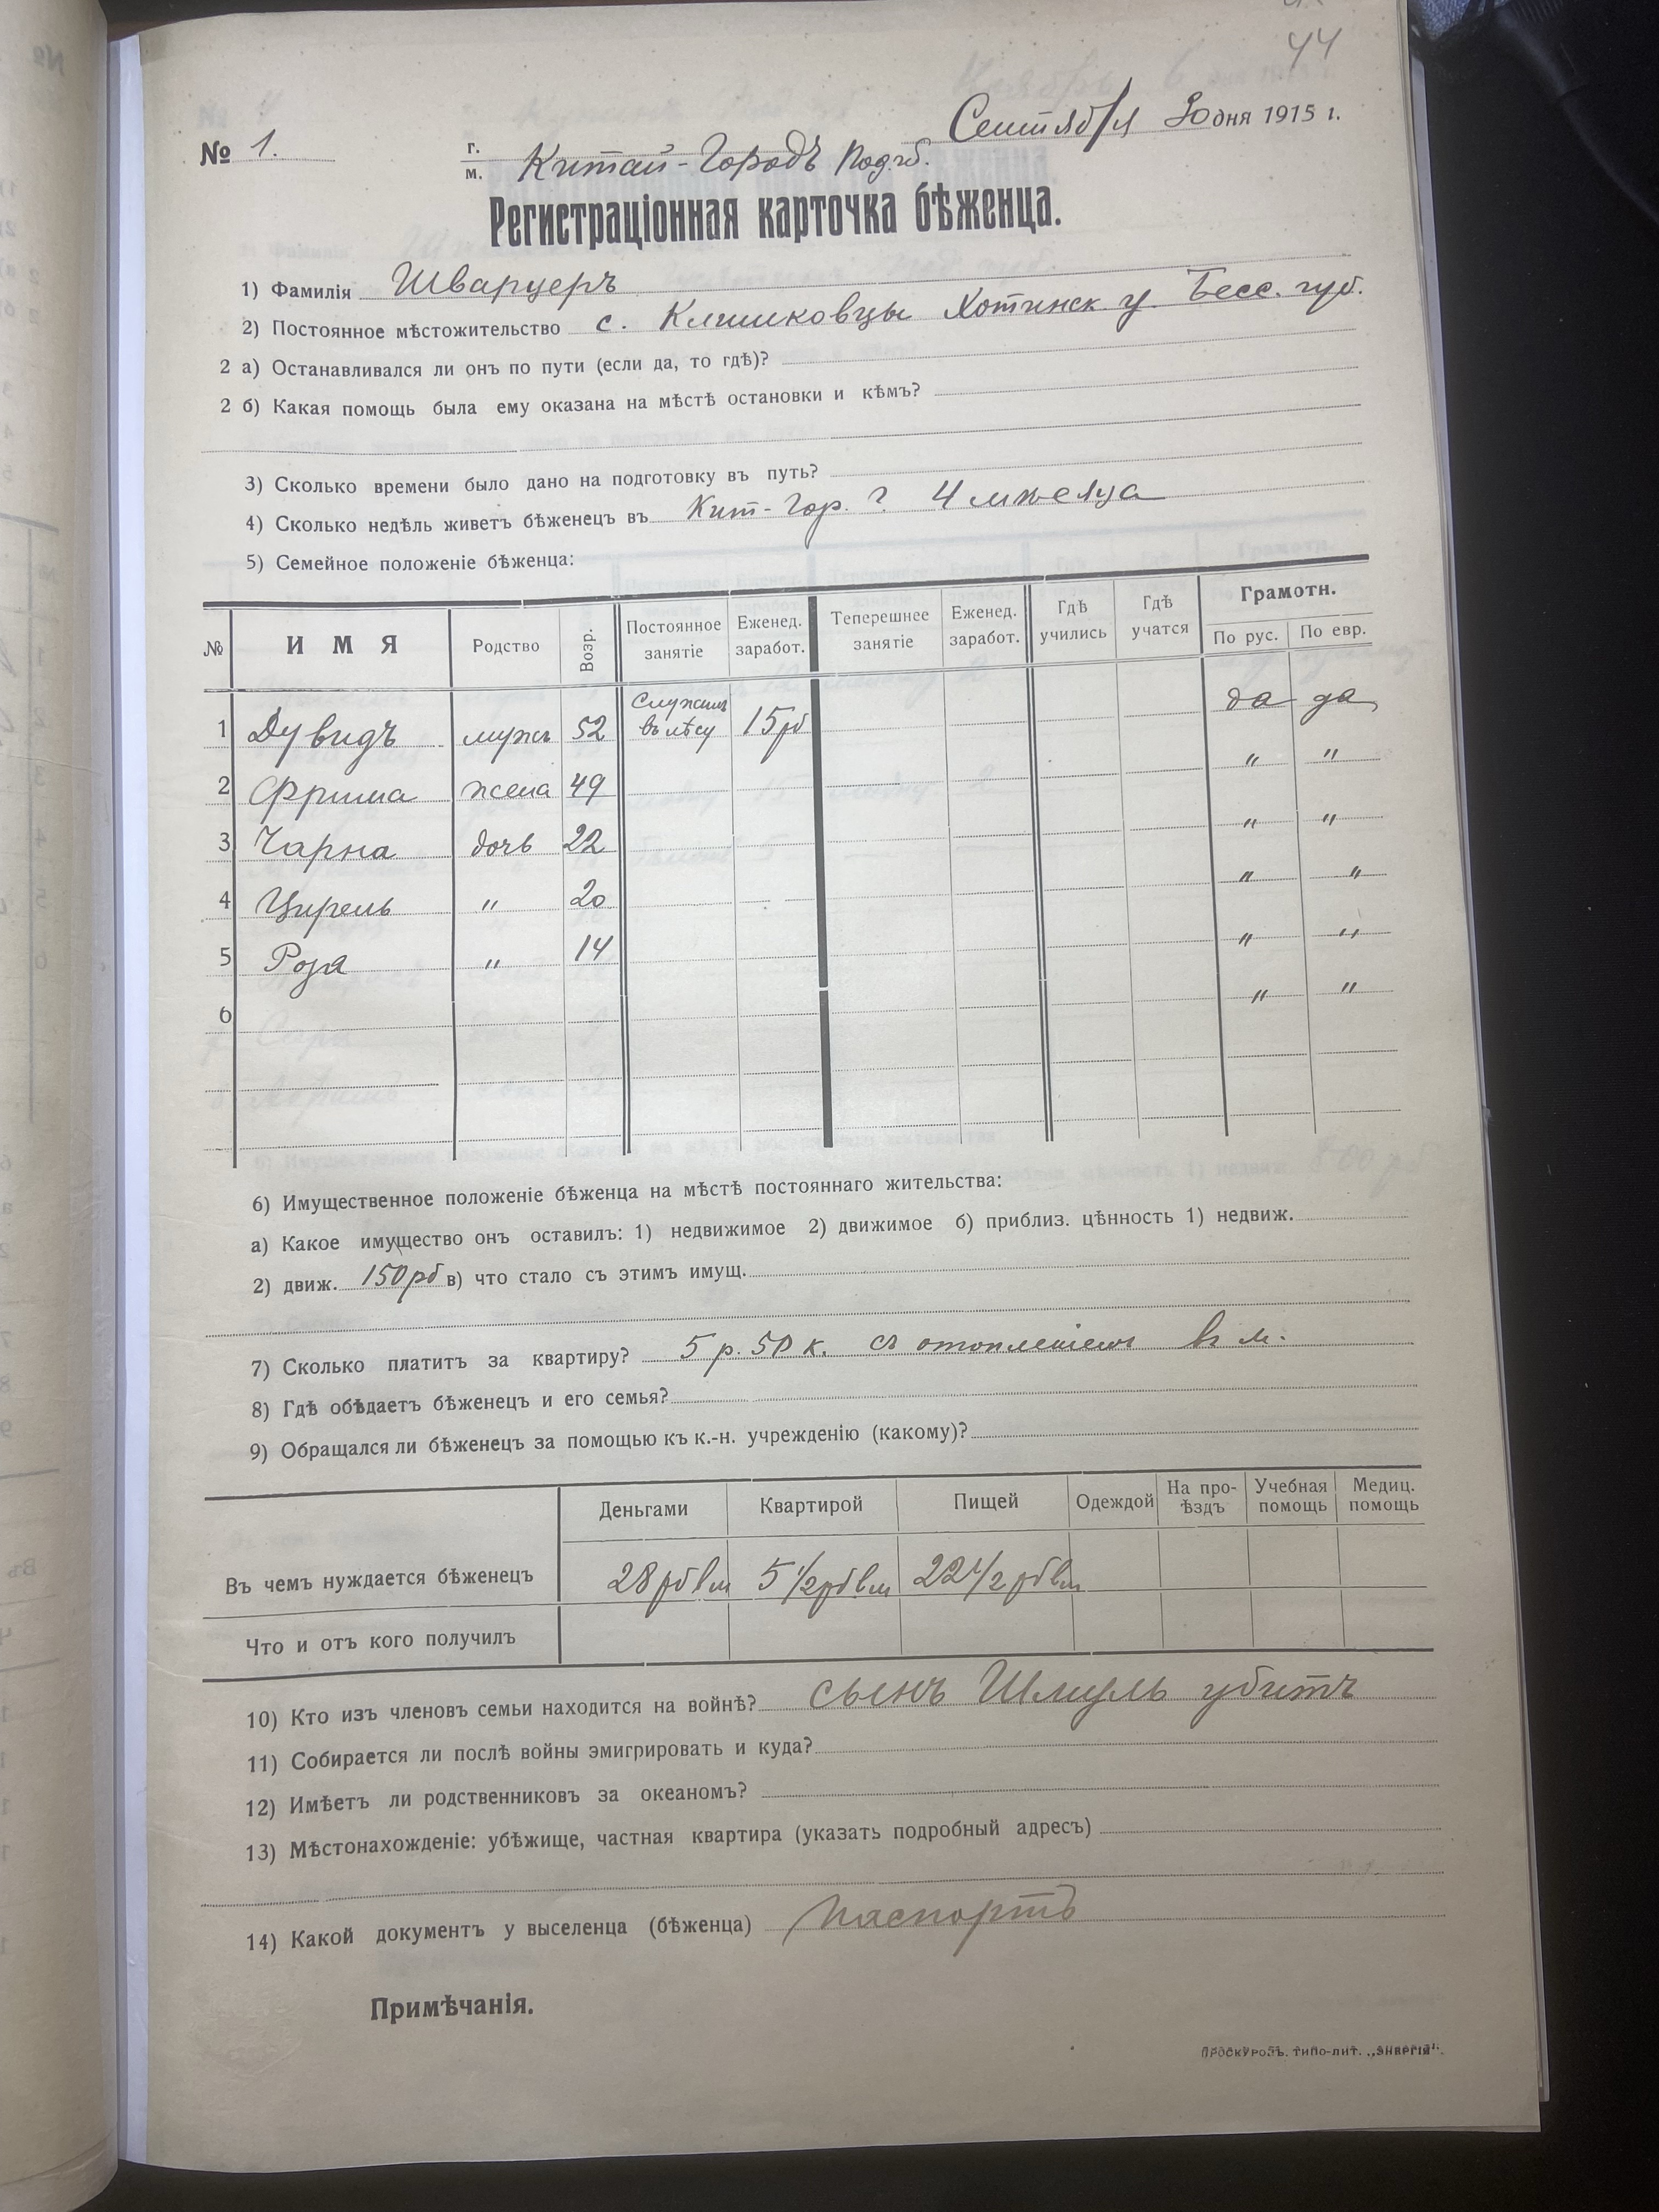 44
Сентября 30 дня 1915 г.
№ 1.
г.
м. Китай-Городъ Под. губ.
Регистраціонная карточка бѣженца.
1) Фамилія Шварцеръ
2) Постоянное мѣстожительство с. Клишковцы Хотинск. у. Бесс. губ.
2 а) Останавливался ли онъ по пути (если да, то гдѣ)?
2 б) Какая помощь была ему оказана на мѣстѣ остановки и кѣмъ?
3) Сколько времени было дано на подготовку въ путь?
4) Сколько недѣль живетъ бѣженецъ въ Кит-Гор. ? 4 мѣсяца
5) Семейное положеніе бѣженца:
№ ИМЯ Родство Возр. Постоянное занятіе Еженед. заработ. Теперешнее занятіе Еженед. заработ. Гдѣ учились Гдѣ учатся Грамотн. По рус. По евр.
1 Дувидъ мужъ 52 Служилъ въ лѣсу 15 рб да да
2 Фрима жена 49 " "
3 Чарна дочь 22 " "
4 Цирель " 20 " "
5 Роза " 14 " "
6 " "
6) Имущественное положеніе бѣженца на мѣстѣ постояннаго жительства:
а) Какое имущество онъ оставилъ: 1) недвижимое 2) движимое б) приблиз. цѣнность 1) недвиж.
2) движ. 150 рб в) что стало съ этимъ имущ.
7) Сколько платитъ за квартиру? 5 р. 50 к. съ отопленіемъ въ м.
8) Гдѣ обѣдаетъ бѣженецъ и его семья?
9) Обращался ли бѣженецъ за помощью къ к.-н. учрежденію (какому)?
Деньгами Квартирой Пищей Одеждой На про-ѣздъ Учебная помощь Медиц. помощь
Въ чемъ нуждается бѣженецъ 28 рб в м 5 1/2 рб в м 22 1/2 рб в м
Что и отъ кого получилъ
10) Кто изъ членовъ семьи находится на войнѣ? сынъ Шмуль убитъ
11) Собирается ли послѣ войны эмигрировать и куда?
12) Имѣетъ ли родственниковъ за океаномъ?
13) Мѣстонахожденіе: убѣжище, частная квартира (указать подробный адресъ)
14) Какой документъ у выселенца (бѣженца) паспортъ
Примѣчанія.
ПРОСКУРОВЪ. ТИПО-ЛИТ. „ЭНЕРГІЯ".